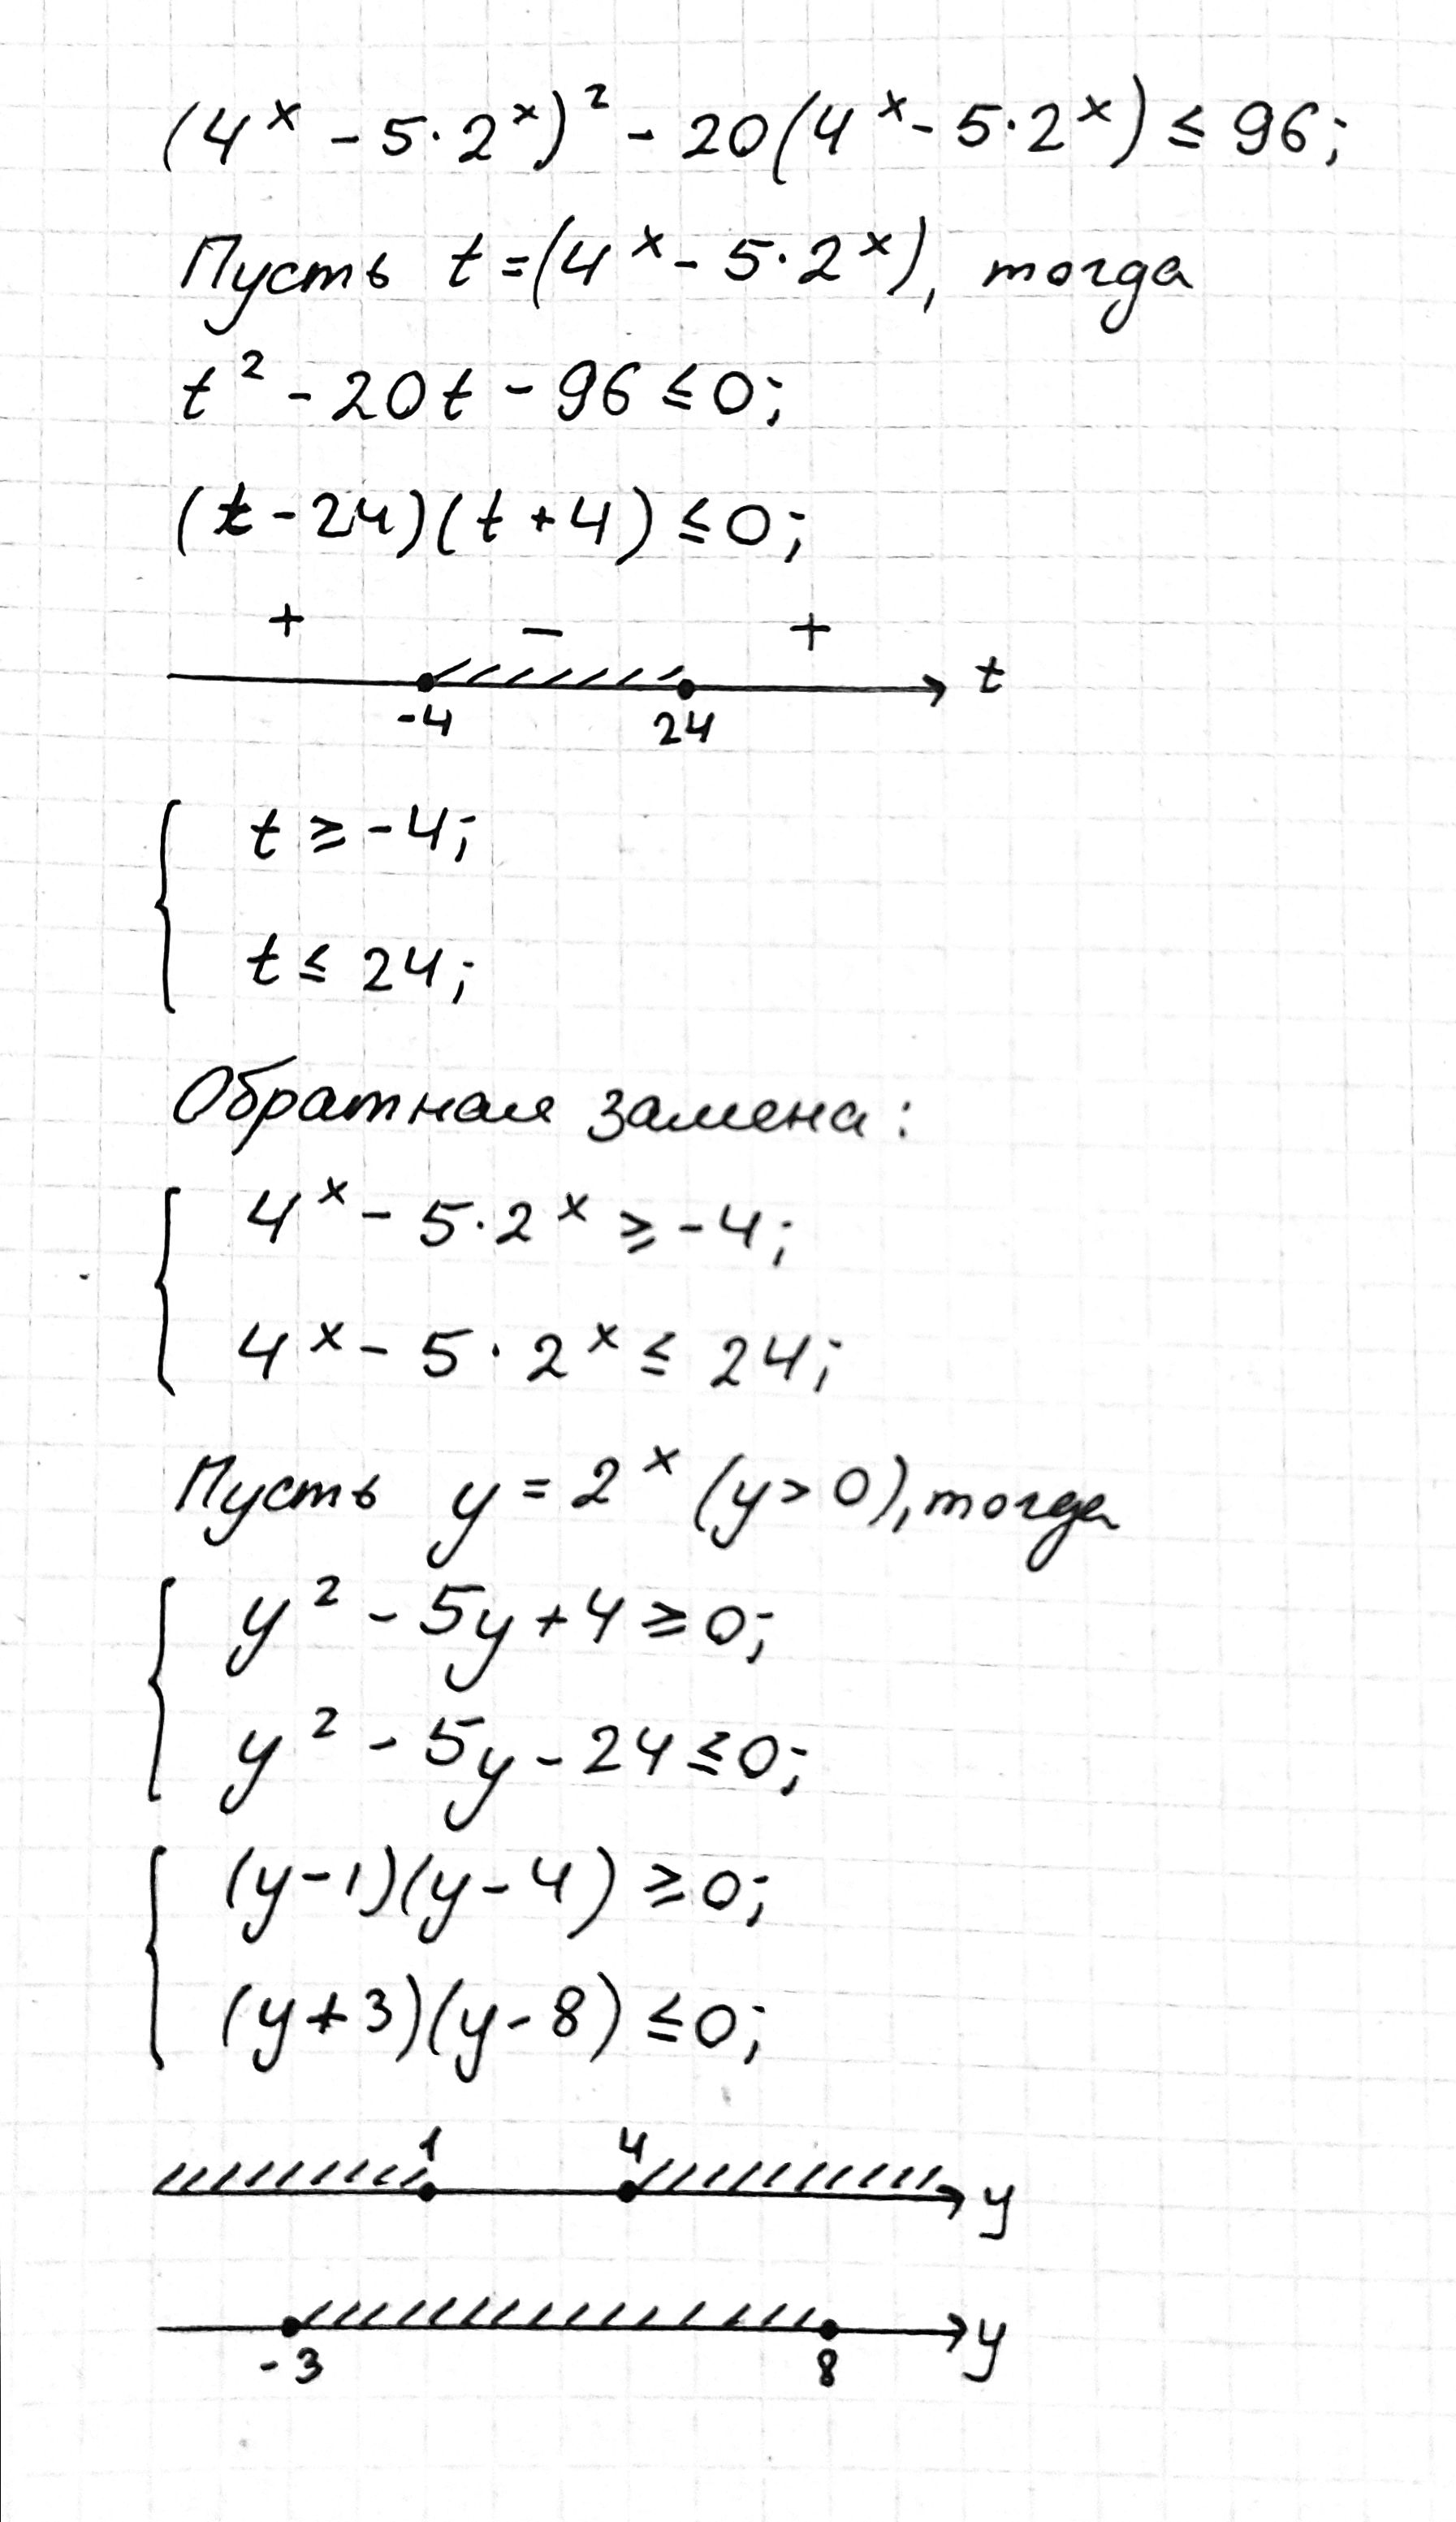 (4ˣ - 5·2ˣ)² - 20(4ˣ - 5·2ˣ) ≤ 96;
Пусть t = (4ˣ - 5·2ˣ), тогда
t² - 20t - 96 ≤ 0;
(t - 24)(t + 4) ≤ 0;
+ − +
t
-4 24
t ≥ -4;
t ≤ 24;
Обратная замена:
4ˣ - 5·2ˣ ≥ -4;
4ˣ - 5·2ˣ ≤ 24;
Пусть y = 2ˣ (y > 0), тогда
y² - 5y + 4 ≥ 0;
y² - 5y - 24 ≤ 0;
(y - 1)(y - 4) ≥ 0;
(y + 3)(y - 8) ≤ 0;
1 4
y
y
-3 8